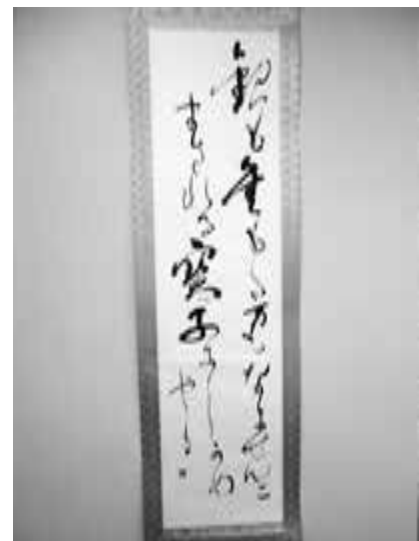 銀も金も玉もなにせむに
まされる寳子にしかめ
やも